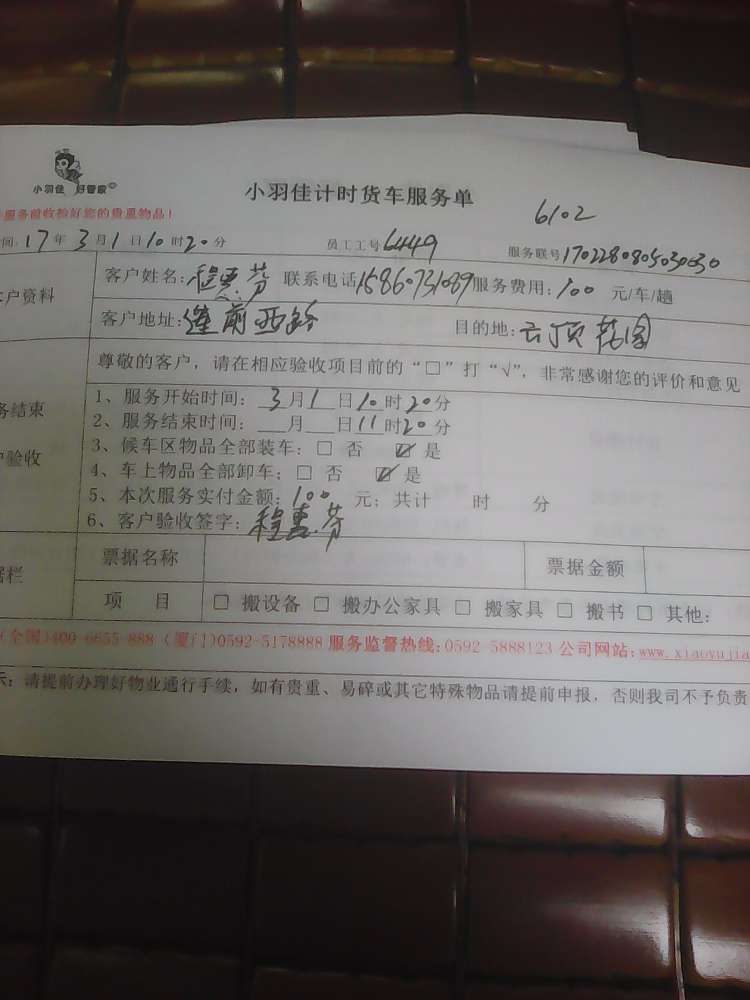 小羽佳 好管家
小羽佳计时货车服务单
服务前收检好您的贵重物品!
6102
间:17年3月1日10时20分 员工工号6449 服务联号170228080503030
户资料 客户姓名:程惠芬 联系电话15860731089 服务费用:100 元/车/趟
客户地址:莲前西路 目的地:云顶花园
尊敬的客户,请在相应验收项目前的“□”打“√”,非常感谢您的评价和意见
务结束
户验收
1、服务开始时间:3月1日10时20分
2、服务结束时间:__月__日11时20分
3、候车区物品全部装车:□ 否 ☑ 是
4、车上物品全部卸车:□ 否 ☑ 是
5、本次服务实付金额:100 元;共计 时 分
6、客户验收签字:程惠芬
据栏 票据名称 票据金额
项 目 □ 搬设备 □ 搬办公家具 □ 搬家具 □ 搬书 □ 其他:
(全国)400-6655-888 (厦门)0592-5178888 服务监督热线:0592-5888123 公司网站:www.xiaoyujia
示:请提前办理好物业通行手续,如有贵重、易碎或其它特殊物品请提前申报,否则我司不予负责